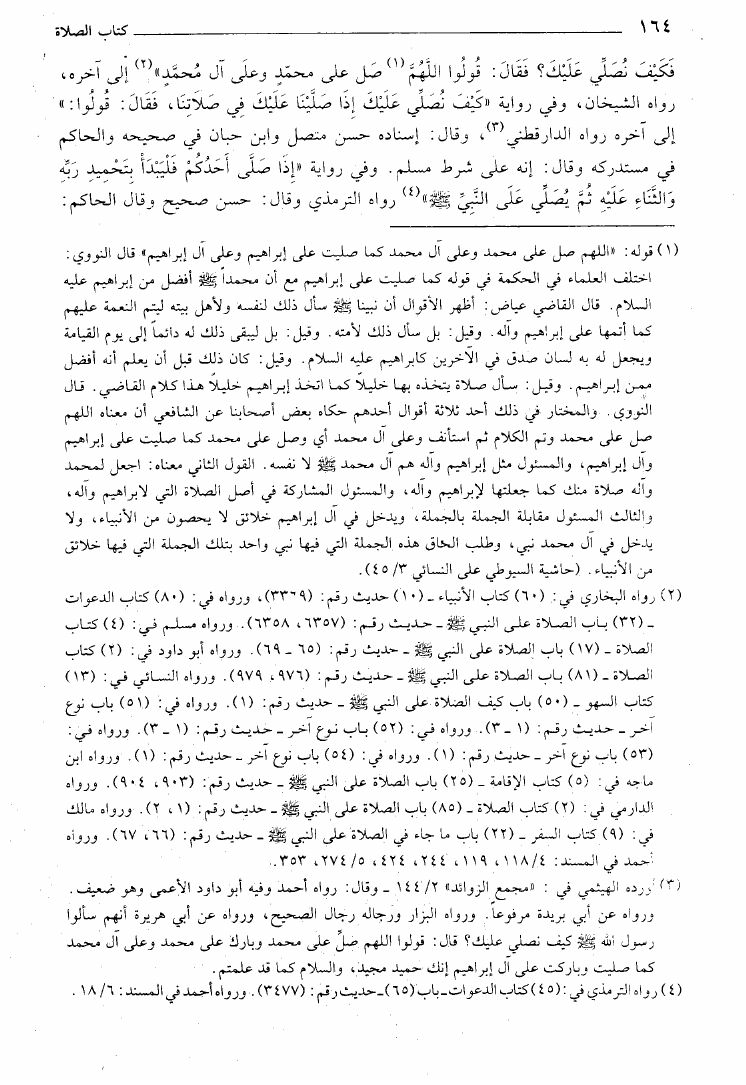 ١٦٤ كتاب الصلاة
فَكَيْفَ نُصَلِّي عَلَيْكَ؟ فَقَالَ: قُولُوا اللَّهُمَّ(١) صَل على محمّدٍ وعلَى آل مُحمَّدٍ»(٢) إلى آخره،
رواه الشيخان، وفي رواية «كَيْفَ نُصَلِّي عَلَيْكَ إذَا صَلَّيْنَا عَلَيْكَ فِي صَلَاتِنَا، فَقَالَ: قُولُوا:»
إلى آخره رواه الدارقطني(٣)، وقال: إسناده حسن متصل وابن حبان في صحيحه والحاكم
في مستدركه وقال: إنه على شرط مسلم. وفي رواية «إذَا صَلَّى أَحَدُكُمْ فَلْيَبْدَأْ بِتَحْمِيدِ رَبِّهِ
وَالثَّنَاءِ عَلَيْهِ ثُمَّ يُصَلِّي عَلَى النَّبِيِّ ﷺ»(٤) رواه الترمذي وقال: حسن صحيح وقال الحاكم:
(١) قوله: «اللهم صل على محمد وعلى آل محمد كما صليت على إبراهيم وعلى آل إبراهيم» قال النووي:
اختلف العلماء في الحكمة في قوله كما صليت على إبراهيم مع أن محمداً ﷺ أفضل من إبراهيم عليه
السلام. قال القاضي عياض: أظهر الأقوال أن نبينا ﷺ سأل ذلك لنفسه ولأهل بيته ليتم النعمة عليهم
كما أتمها على إبراهيم وآله. وقيل: بل سأل ذلك لأمته. وقيل: بل ليبقى ذلك له دائماً إلى يوم القيامة
ويجعل له به لسان صدق في الآخرين كابراهيم عليه السلام. وقيل: كان ذلك قبل أن يعلم أنه أفضل
ممن إبراهيم. وقيل: سأل صلاة يتخذه بها خليلاً كما اتخذ إبراهيم خليلاً هذا كلام القاضي. قال
النووي. والمختار في ذلك أحد ثلاثة أقوال أحدهم حكاه بعض أصحابنا عن الشافعي أن معناه اللهم
صل على محمد وتم الكلام ثم استأنف وعلى آل محمد أي وصل على محمد كما صليت على إبراهيم
وآل إبراهيم، والمسئول مثل إبراهيم وآله هم آل محمد ﷺ لا نفسه. القول الثاني معناه: اجعل لمحمد
وآله صلاة منك كما جعلتها لإبراهيم وآله، والمسئول المشاركة في أصل الصلاة التي لابراهيم وآله،
والثالث المسئول مقابلة الجملة بالجملة، ويدخل في آل إبراهيم خلائق لا يحصون من الأنبياء، ولا
يدخل في آل محمد نبي، وطلب الحاق هذه الجملة التي فيها نبي واحد بتلك الجملة التي فيها خلائق
من الأنبياء. (حاشية السيوطي على النسائي ٣/ ٤٥).
(٢) رواه البخاري في: (٦٠) كتاب الأنبياء ـ (١٠) حديث رقم: (٣٣٦٩)، ورواه في: (٨٠) كتاب الدعوات
ـ (٣٢) باب الصلاة على النبي ﷺ ـ حديث رقم: (٦٣٥٧، ٦٣٥٨). ورواه مسلم في: (٤) كتاب
الصلاة ـ (١٧) باب الصلاة على النبي ﷺ ـ حديث رقم: (٦٥ ـ ٦٩). ورواه أبو داود في: (٢) كتاب
الصلاة ـ (٨١) باب الصلاة على النبي ﷺ ـ حديث رقم: (٩٧٦، ٩٧٩). ورواه النسائي في: (١٣)
كتاب السهو ـ (٥٠) باب كيف الصلاة على النبي ﷺ ـ حديث رقم: (١). ورواه في: (٥١) باب نوع
آخر ـ حديث رقم: (١ ـ ٣). ورواه في: (٥٢) باب نوع آخر ـ حديث رقم: (١ ـ ٣). ورواه في:
(٥٣) باب نوع آخر ـ حديث رقم: (١). ورواه في: (٥٤) باب نوع آخر ـ حديث رقم: (١). ورواه ابن
ماجه في: (٥) كتاب الإقامة ـ (٢٥) باب الصلاة على النبي ﷺ ـ حديث رقم: (٩٠٣، ٩٠٤). ورواه
الدارمي في: (٢) كتاب الصلاة ـ (٨٥) باب الصلاة على النبي ﷺ ـ حديث رقم: (١، ٢). ورواه مالك
في: (٩) كتاب السفر ـ (٢٢) باب ما جاء في الصلاة على النبي ﷺ ـ حديث رقم: (٦٦، ٦٧). ورواه
أحمد في المسند: ٤/ ١١٨، ١١٩، ٢٤٤، ٤٢٤، ٥/ ٢٧٤، ٣٥٣.
(٣) أورده الهيثمي في: «مجمع الزوائد» ٢/ ١٤٤ ـ وقال: رواه أحمد وفيه أبو داود الأعمى وهو ضعيف.
ورواه عن أبي بريدة مرفوعاً. ورواه البزار ورجاله رجال الصحيح، ورواه عن أبي هريرة أنهم سألوا
رسول الله ﷺ كيف نصلي عليك؟ قال: قولوا اللهم صلِّ على محمد وبارك على محمد وعلى آل محمد
كما صليت وباركت على آل إبراهيم إنك حميد مجيد، والسلام كما قد علمتم.
(٤) رواه الترمذي في: (٤٥) كتاب الدعوات ـ باب (٦٥) ـ حديث رقم: (٣٤٧٧). ورواه أحمد في المسند: ٦/ ١٨.